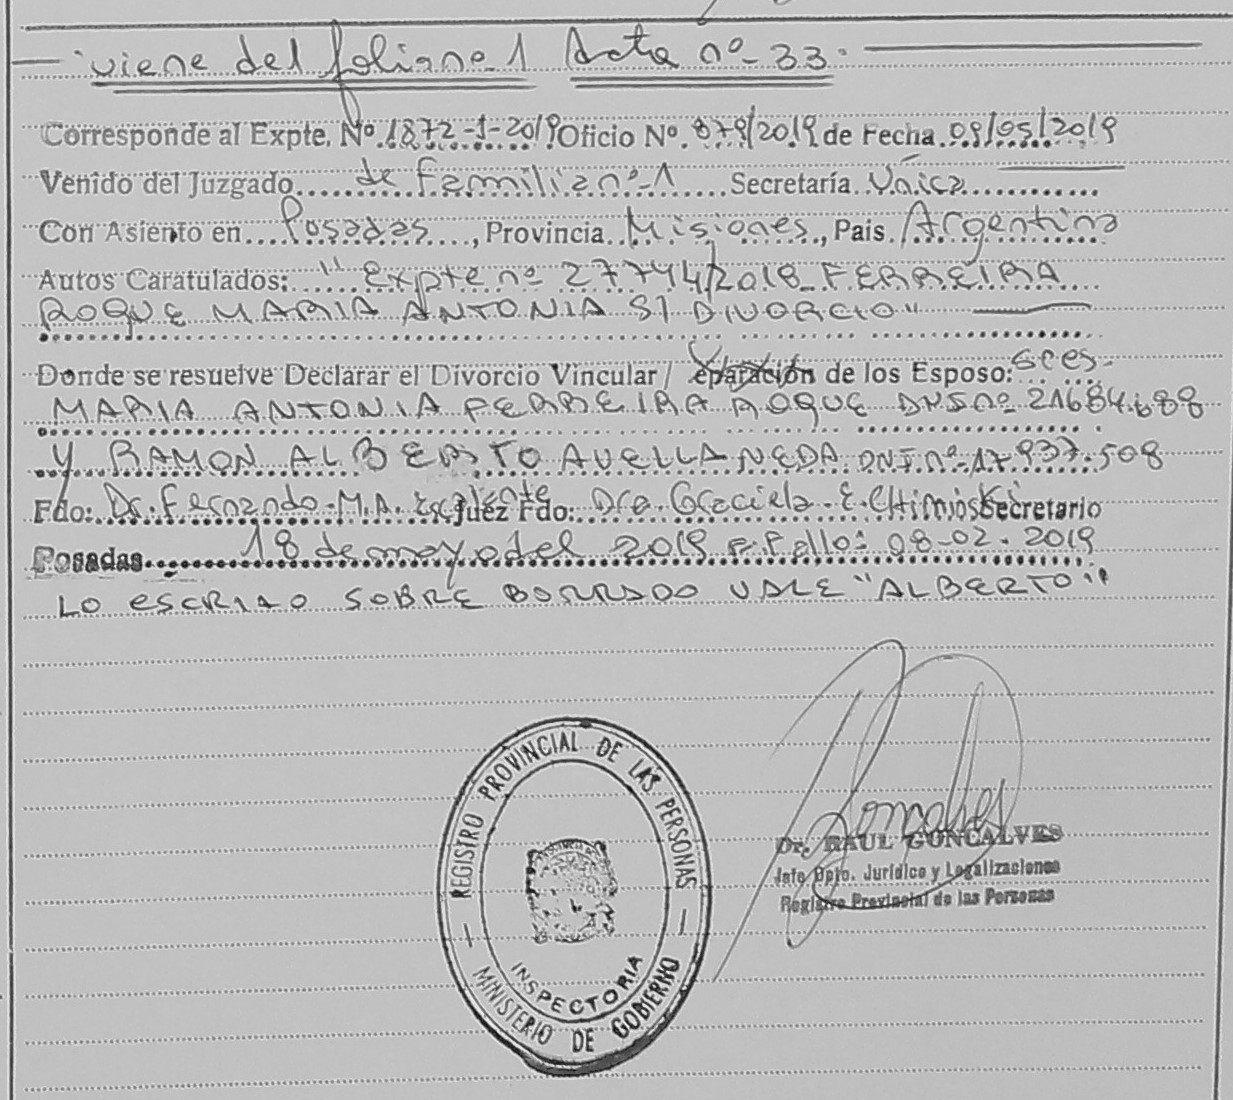 viene del folio nº 1 Acta nº 33.
Corresponde al Expte. Nº 1872-1-2019 Oficio Nº 879/2019 de Fecha 09/05/2019
Venido del Juzgado de Familia nº 1 Secretaría Única
Con Asiento en Posadas, Provincia Misiones, País Argentina
Autos Caratulados: "Expte nº 27744/2018 FERREIRA
ROQUE MARIA ANTONIA S/ DIVORCIO"
Donde se resuelve Declarar el Divorcio Vincular / eparación de los Esposo: sres.
MARIA ANTONIA FERREIRA ROQUE DNI nº 21684.688
Y RAMON ALBERTO AVELLANEDA DNI. nº 17.937.508
Fdo: Dr. Fernando M.A. Escalante Juez Fdo: Dra. Graciela E. Chimiski Secretario
Posadas 18 de mayo del 2019 F. Fallo: 08-02-2019
LO ESCRITO SOBRE BORRADO VALE "ALBERTO"
REGISTRO PROVINCIAL DE LAS PERSONAS
INSPECTORIA
MINISTERIO DE GOBIERNO
Dr. RAUL GONCALVES
Jefe Dpto. Jurídico y Legalizaciones
Registro Provincial de las Personas